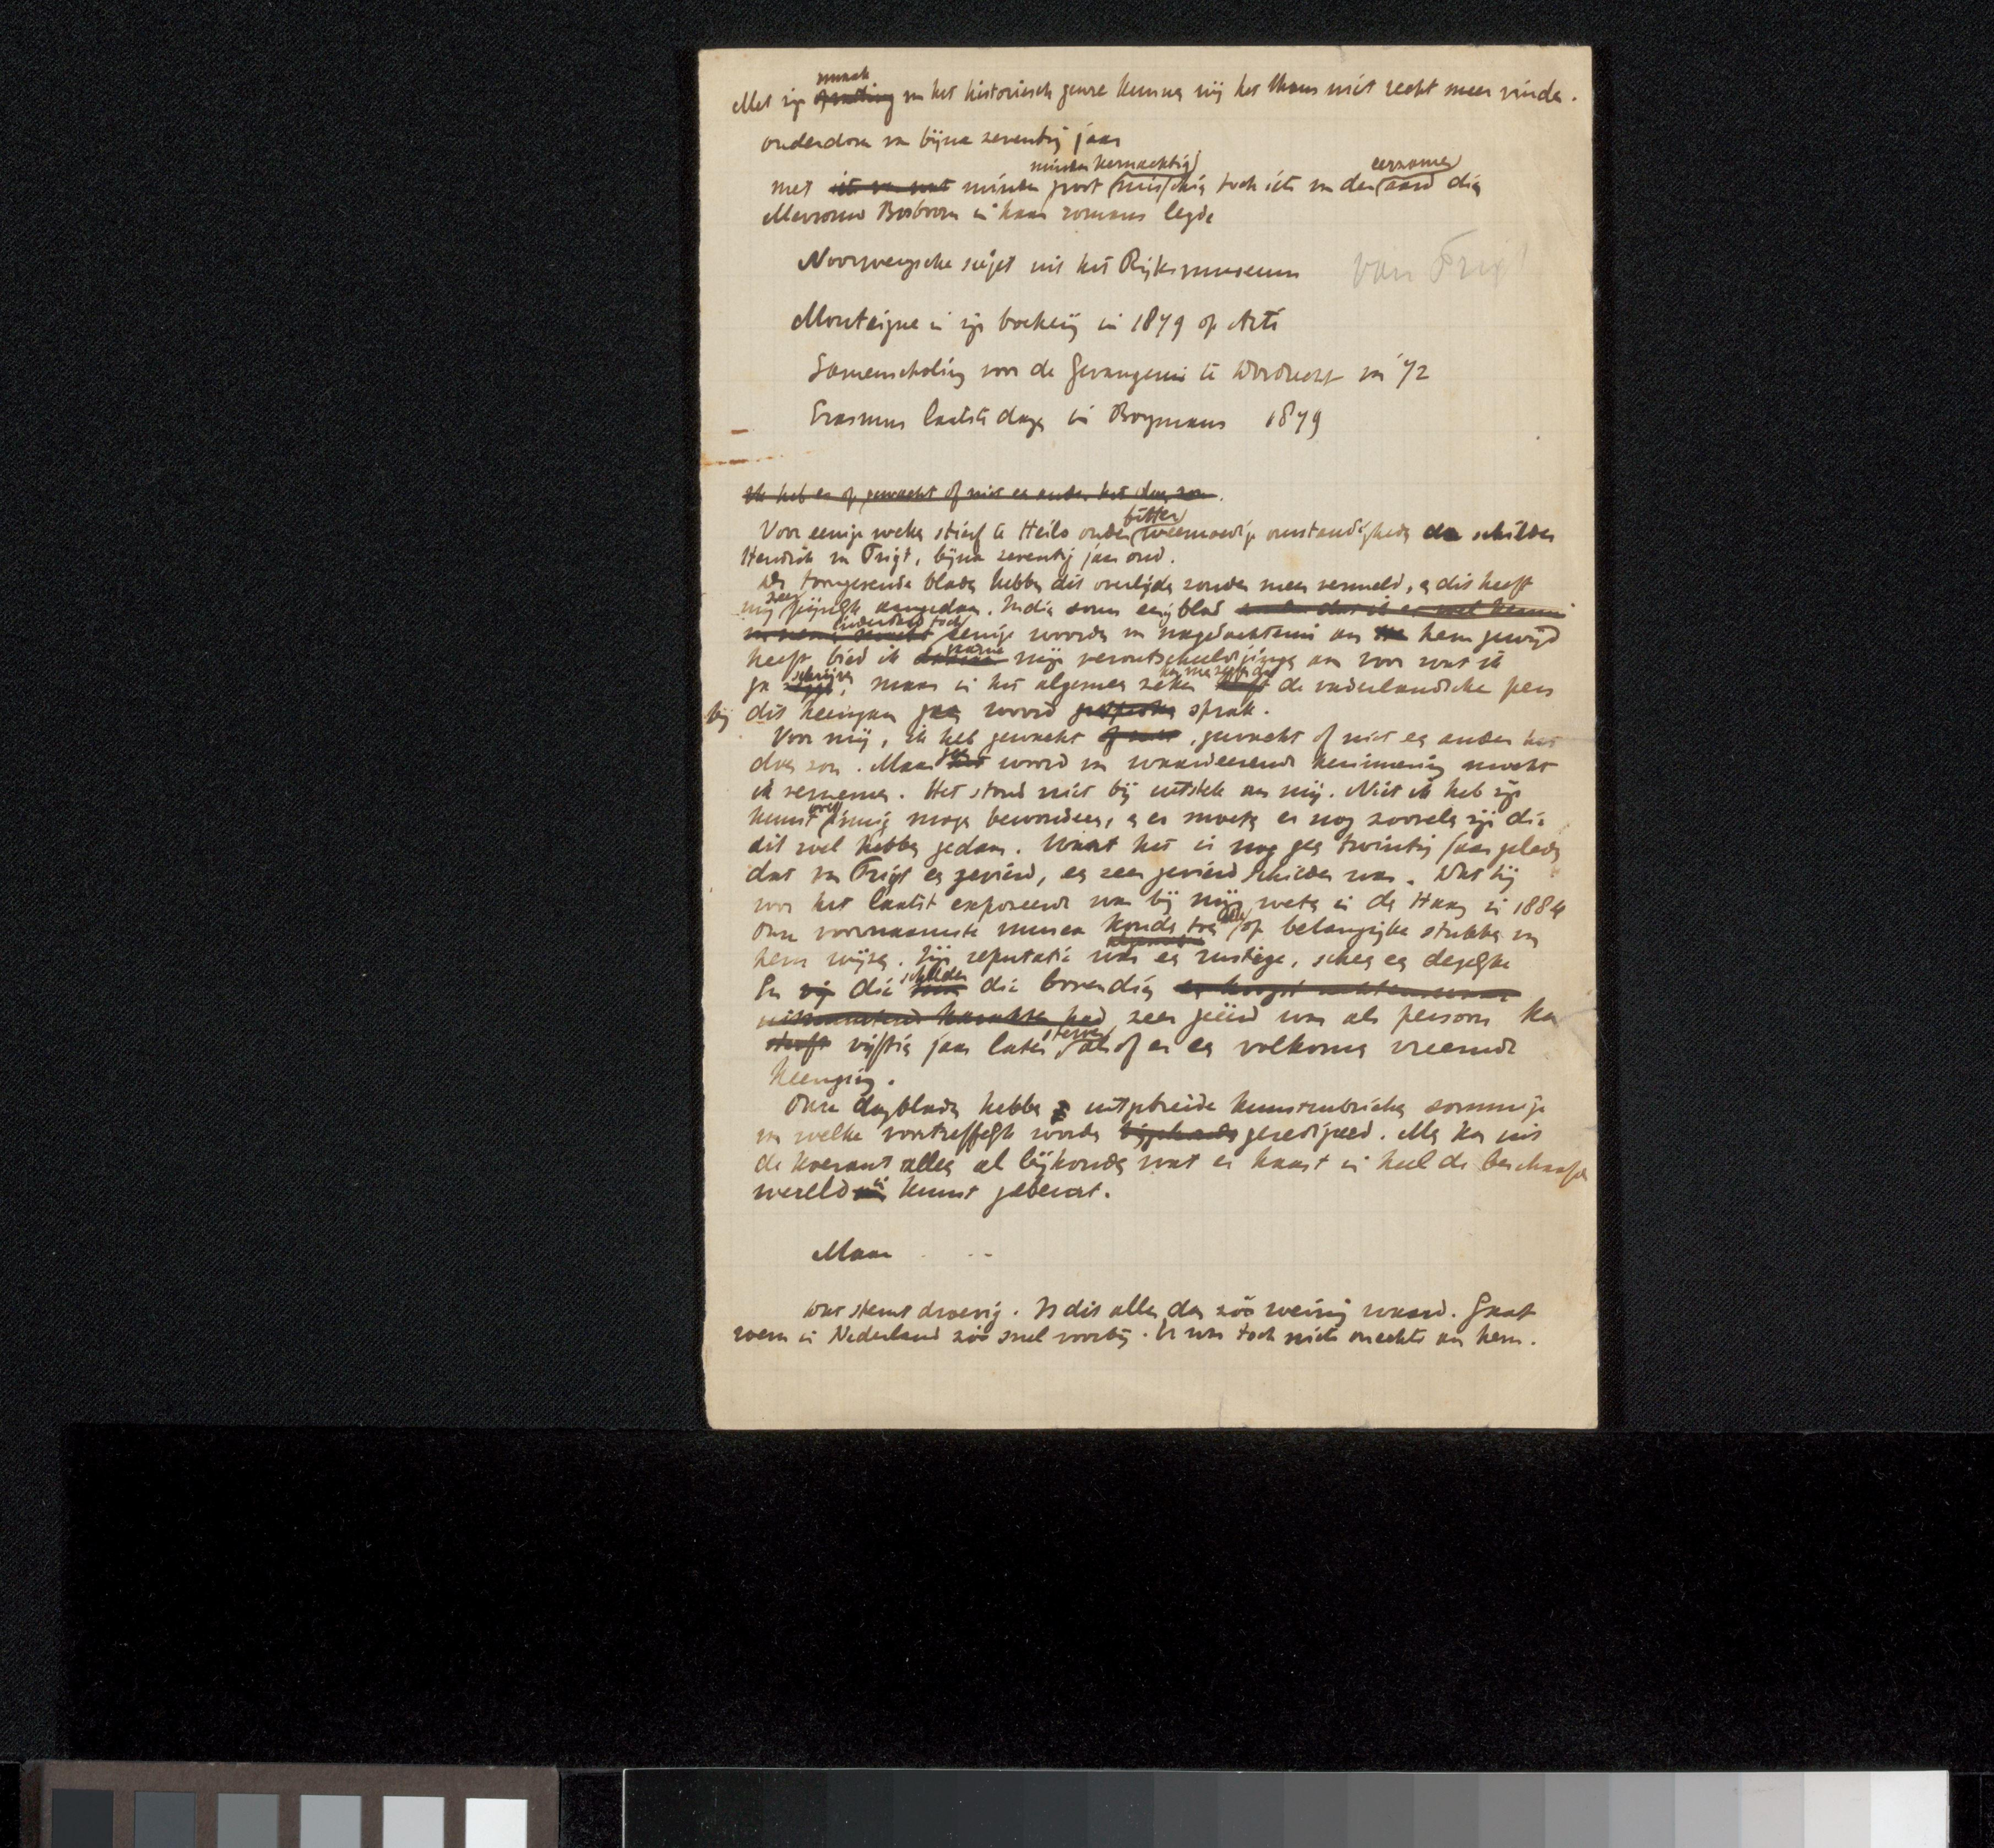 smaak
Met zijn van het historisch genre kunnen wij het thans niet recht meer vinden.
ouderdom van bijna zeventig jaar
minder kernachtig eerzame
met minder groot misschien toch iets van den aard dien
Mevrouw Bosboom in haar romans legde
Noorweegsche sujet uit het Rijksmuseum van Trigt
Montaigne in zijn boekerij in 1879 op Arti
Samenscholing voor de Gevangenis te Dordrecht in 72
Erasmus laatste dagen in Boymans 1879
Ik heb er op gewacht of niet een ander het doen zou.
bitter
Voor eenige weken stierf te Heilo onder weemoedige omstandigheden de schilder
Hendrik van Trigt, bijna zeventig jaar oud.
toongevende bladen hebben dit overlijden zonder meer vermeld, en dit heeft
zeer
mij pijnlijk aangedaan. Indien soms eenig blad
inderdaad toch
eenige woorden van nagedachtenis aan hem gewijd
gaarne
heeft, bied ik mijn verontschuldigingen aan voor wat ik
schrijven
ga maar in het algemeen zeker de vaderlandsche pers
bij dit heengaan geen woord sprak.
Voor mij, ik heb gewacht, gewacht of niet een ander het
geen
doen zou. Maar woord van waardeerende herinnering mocht
ik vernemen. Het stond niet bij uitstek aan mij. Niet ik heb zijn
kunst innig mogen bewonderen, en er moeten er nog zoovelen zijn die
dit wel hebben gedaan. Want het is nog geen twintig jaar geleden
dat van Trigt een gevierd, een zeer gevierd schilder was. Wat hij
voor het laatst exposeerde was bij mijn weten in den Haag in 1884
Onze voornaamste musea konden toen op belangrijke stukken van
hem wijzen. Zijn reputatie was een rustige, scheen een degelijke
schilder
En die die bovendien
zeer geëerd was als persoon kan
sterven
vijftien jaar later alsof er een volkomen vreemde
heenging.
Onze dagbladen hebben uitgebreide kunstrubrieken sommige
van welke voortreffelijk worden geredigeerd. Men kan uit
de kourant alles al bijhouden wat er haast in heel de beschaafde
wereld in kunst gebeurt.
Maar . . .
Wat stemt droevig. Is dit alles dan zóó weinig waard. Gaat
roem in Nederland zóó snel voorbij. Er was toch niets onechts aan hem.